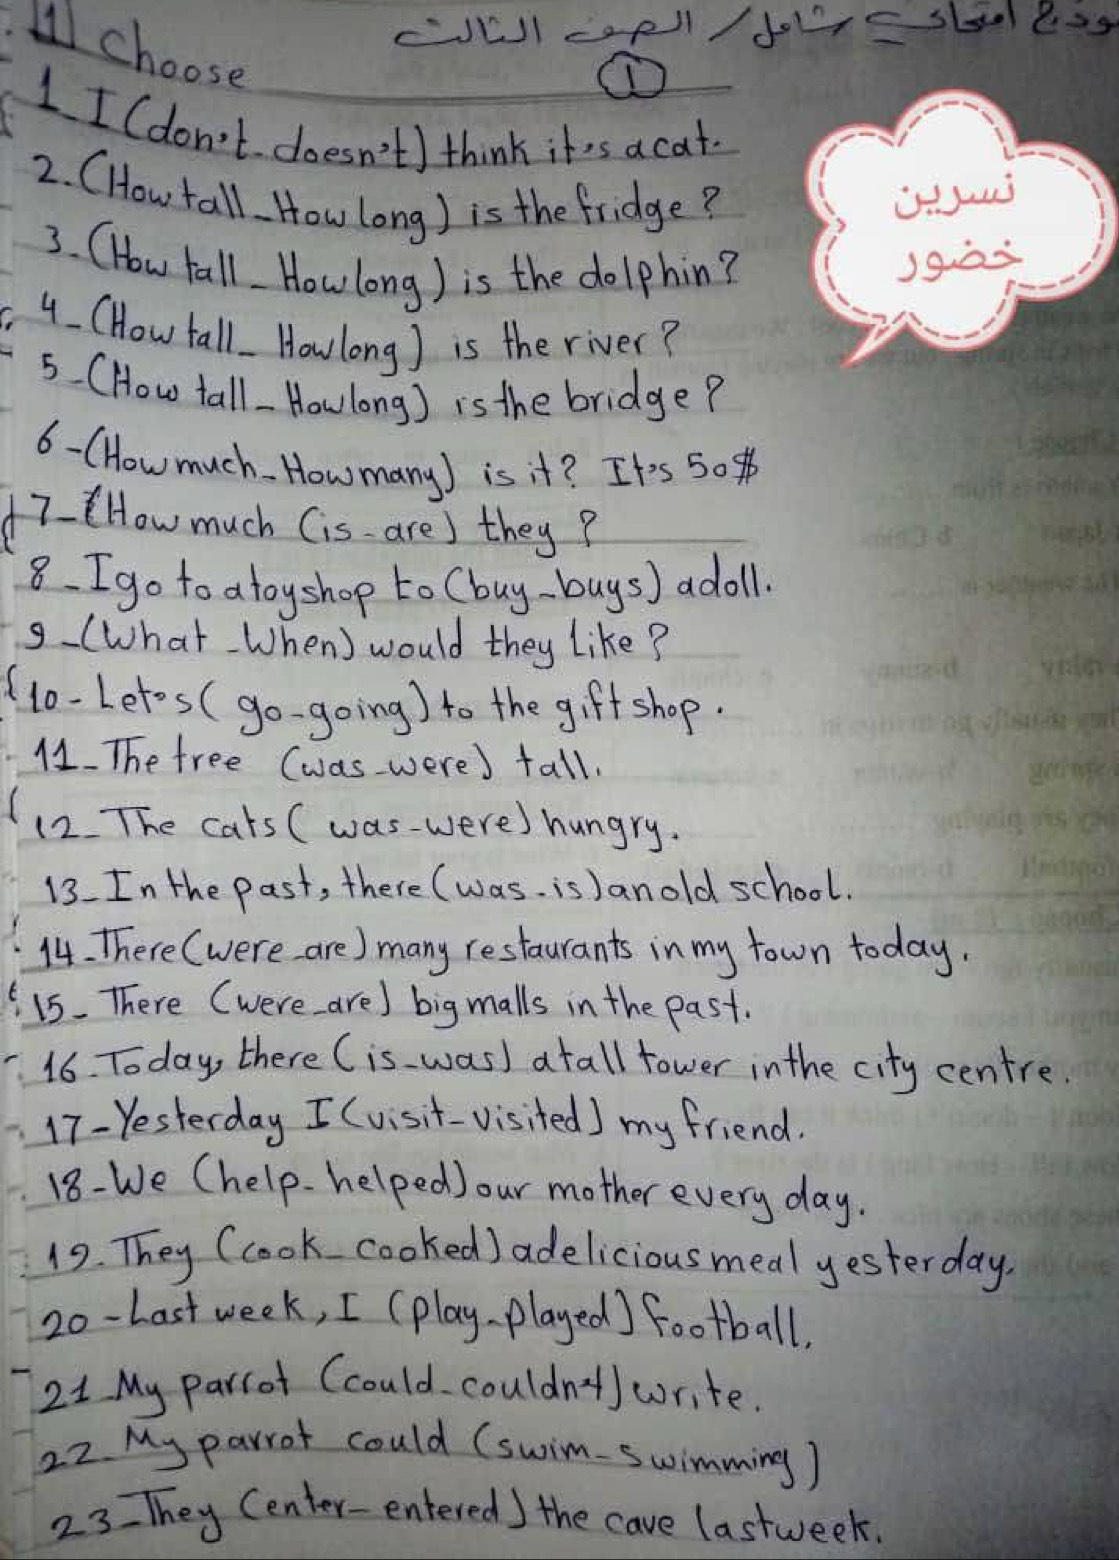 نموذج امتحاني شامل / الصف الثالث
1
1 Choose
1 I (don't - doesn't) think it's a cat.
2. (How tall - How long) is the fridge?
3. (How tall - How long) is the dolphin?
4 - (How tall - How long) is the river?
5 - (How tall - How long) is the bridge?
6 - (How much - How many) is it? It's 50$
7 - (How much (is - are) they?
8 - I go to a toyshop to (buy - buys) a doll.
9 - (What - When) would they like?
10 - Let's ( go - going) to the gift shop.
11 - The tree (was - were) tall.
12 - The cats ( was - were) hungry.
13 - In the past, there (was - is) an old school.
14 - There (were - are) many restaurants in my town today.
15 - There (were - are) big malls in the past.
16 - Today, there (is - was) a tall tower in the city centre.
17 - Yesterday I (visit - visited) my friend.
18 - We (help - helped) our mother every day.
19. They (cook - cooked) a delicious meal yesterday.
20 - Last week, I (play - played) football.
21 - My parrot (could - couldn't) write.
22 - My parrot could (swim - swimming)
23 - They (enter - entered) the cave last week.
نسرين
خضور